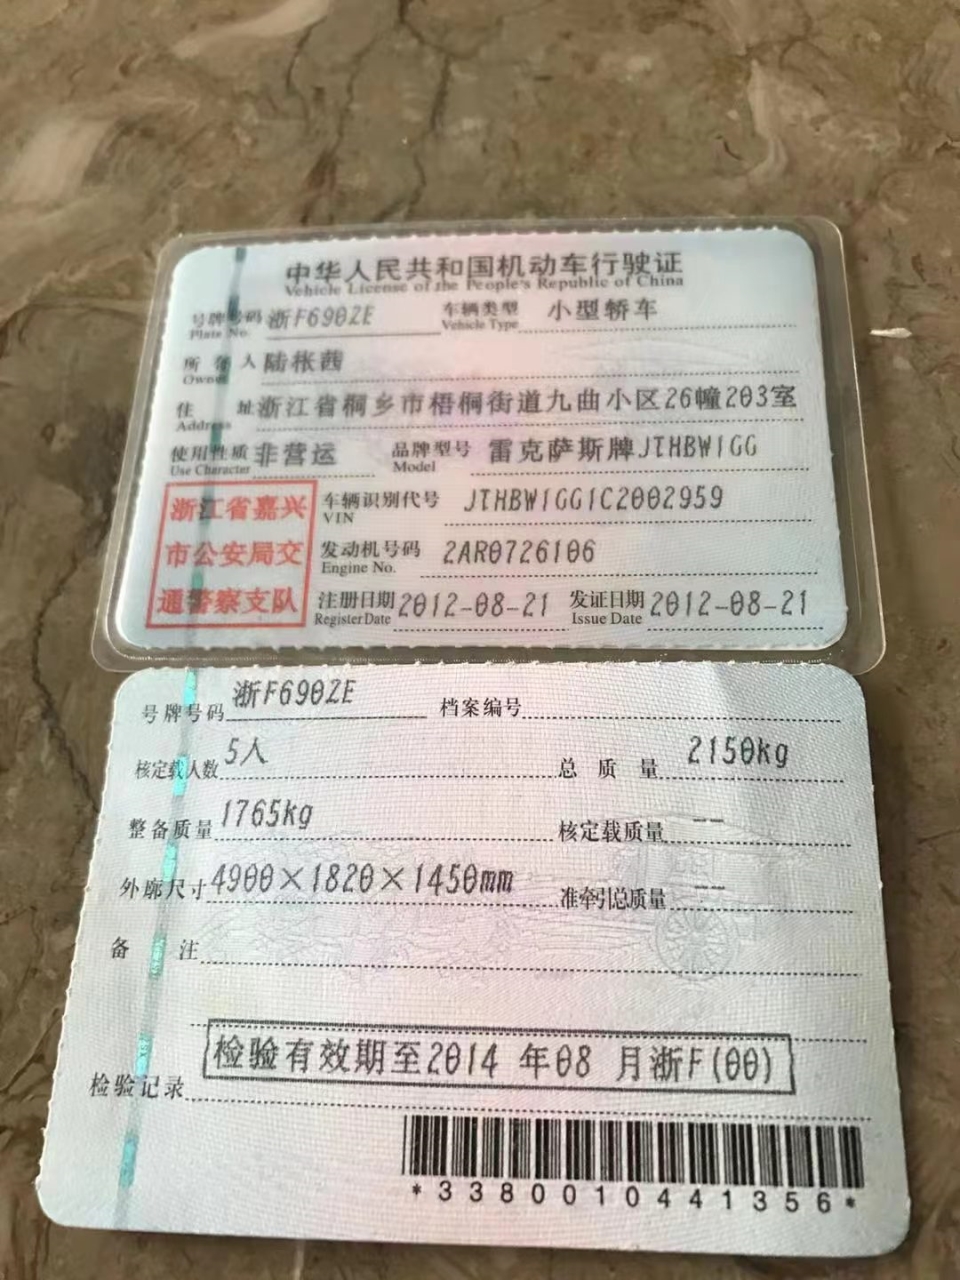 中华人民共和国机动车行驶证
Vehicle License of the People's Republic of China
号牌号码 浙F690ZE 车辆类型 小型轿车
Plate No. Vehicle Type
所有人 陆枨茜
Owner
住址 浙江省桐乡市梧桐街道九曲小区26幢203室
Address
使用性质 非营运 品牌型号 雷克萨斯牌JTHBW1GG
Use Character Model
浙江省嘉兴
市公安局交
通警察支队
车辆识别代号 JTHBW1GG1C2002959
VIN
发动机号码 2AR0726106
Engine No.
注册日期 2012-08-21 发证日期 2012-08-21
Register Date Issue Date
号牌号码 浙F690ZE 档案编号
核定载人数 5人 总质量 2150kg
整备质量 1765kg 核定载质量 --
外廓尺寸 4900×1820×1450mm 准牵引总质量 --
备注
检验有效期至2014 年08 月浙F(00)
检验记录
*3380010441356*